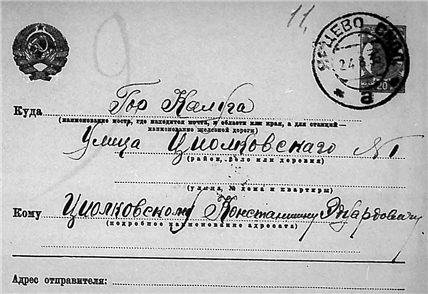 11,
ЯРЦЕВО СМОЛ.
24.8.
20
Куда Гор Калуга
(наименование места, где находится почта, и области или края, а для станций—
наименование железной дороги)
Улица Циолковскаго №1
(район, село или деревня)
(улица, № дома и квартиры)
Кому Циолковскому Константину Эдуардовичу
(подробное наименование адресата)
Адрес отправителя: